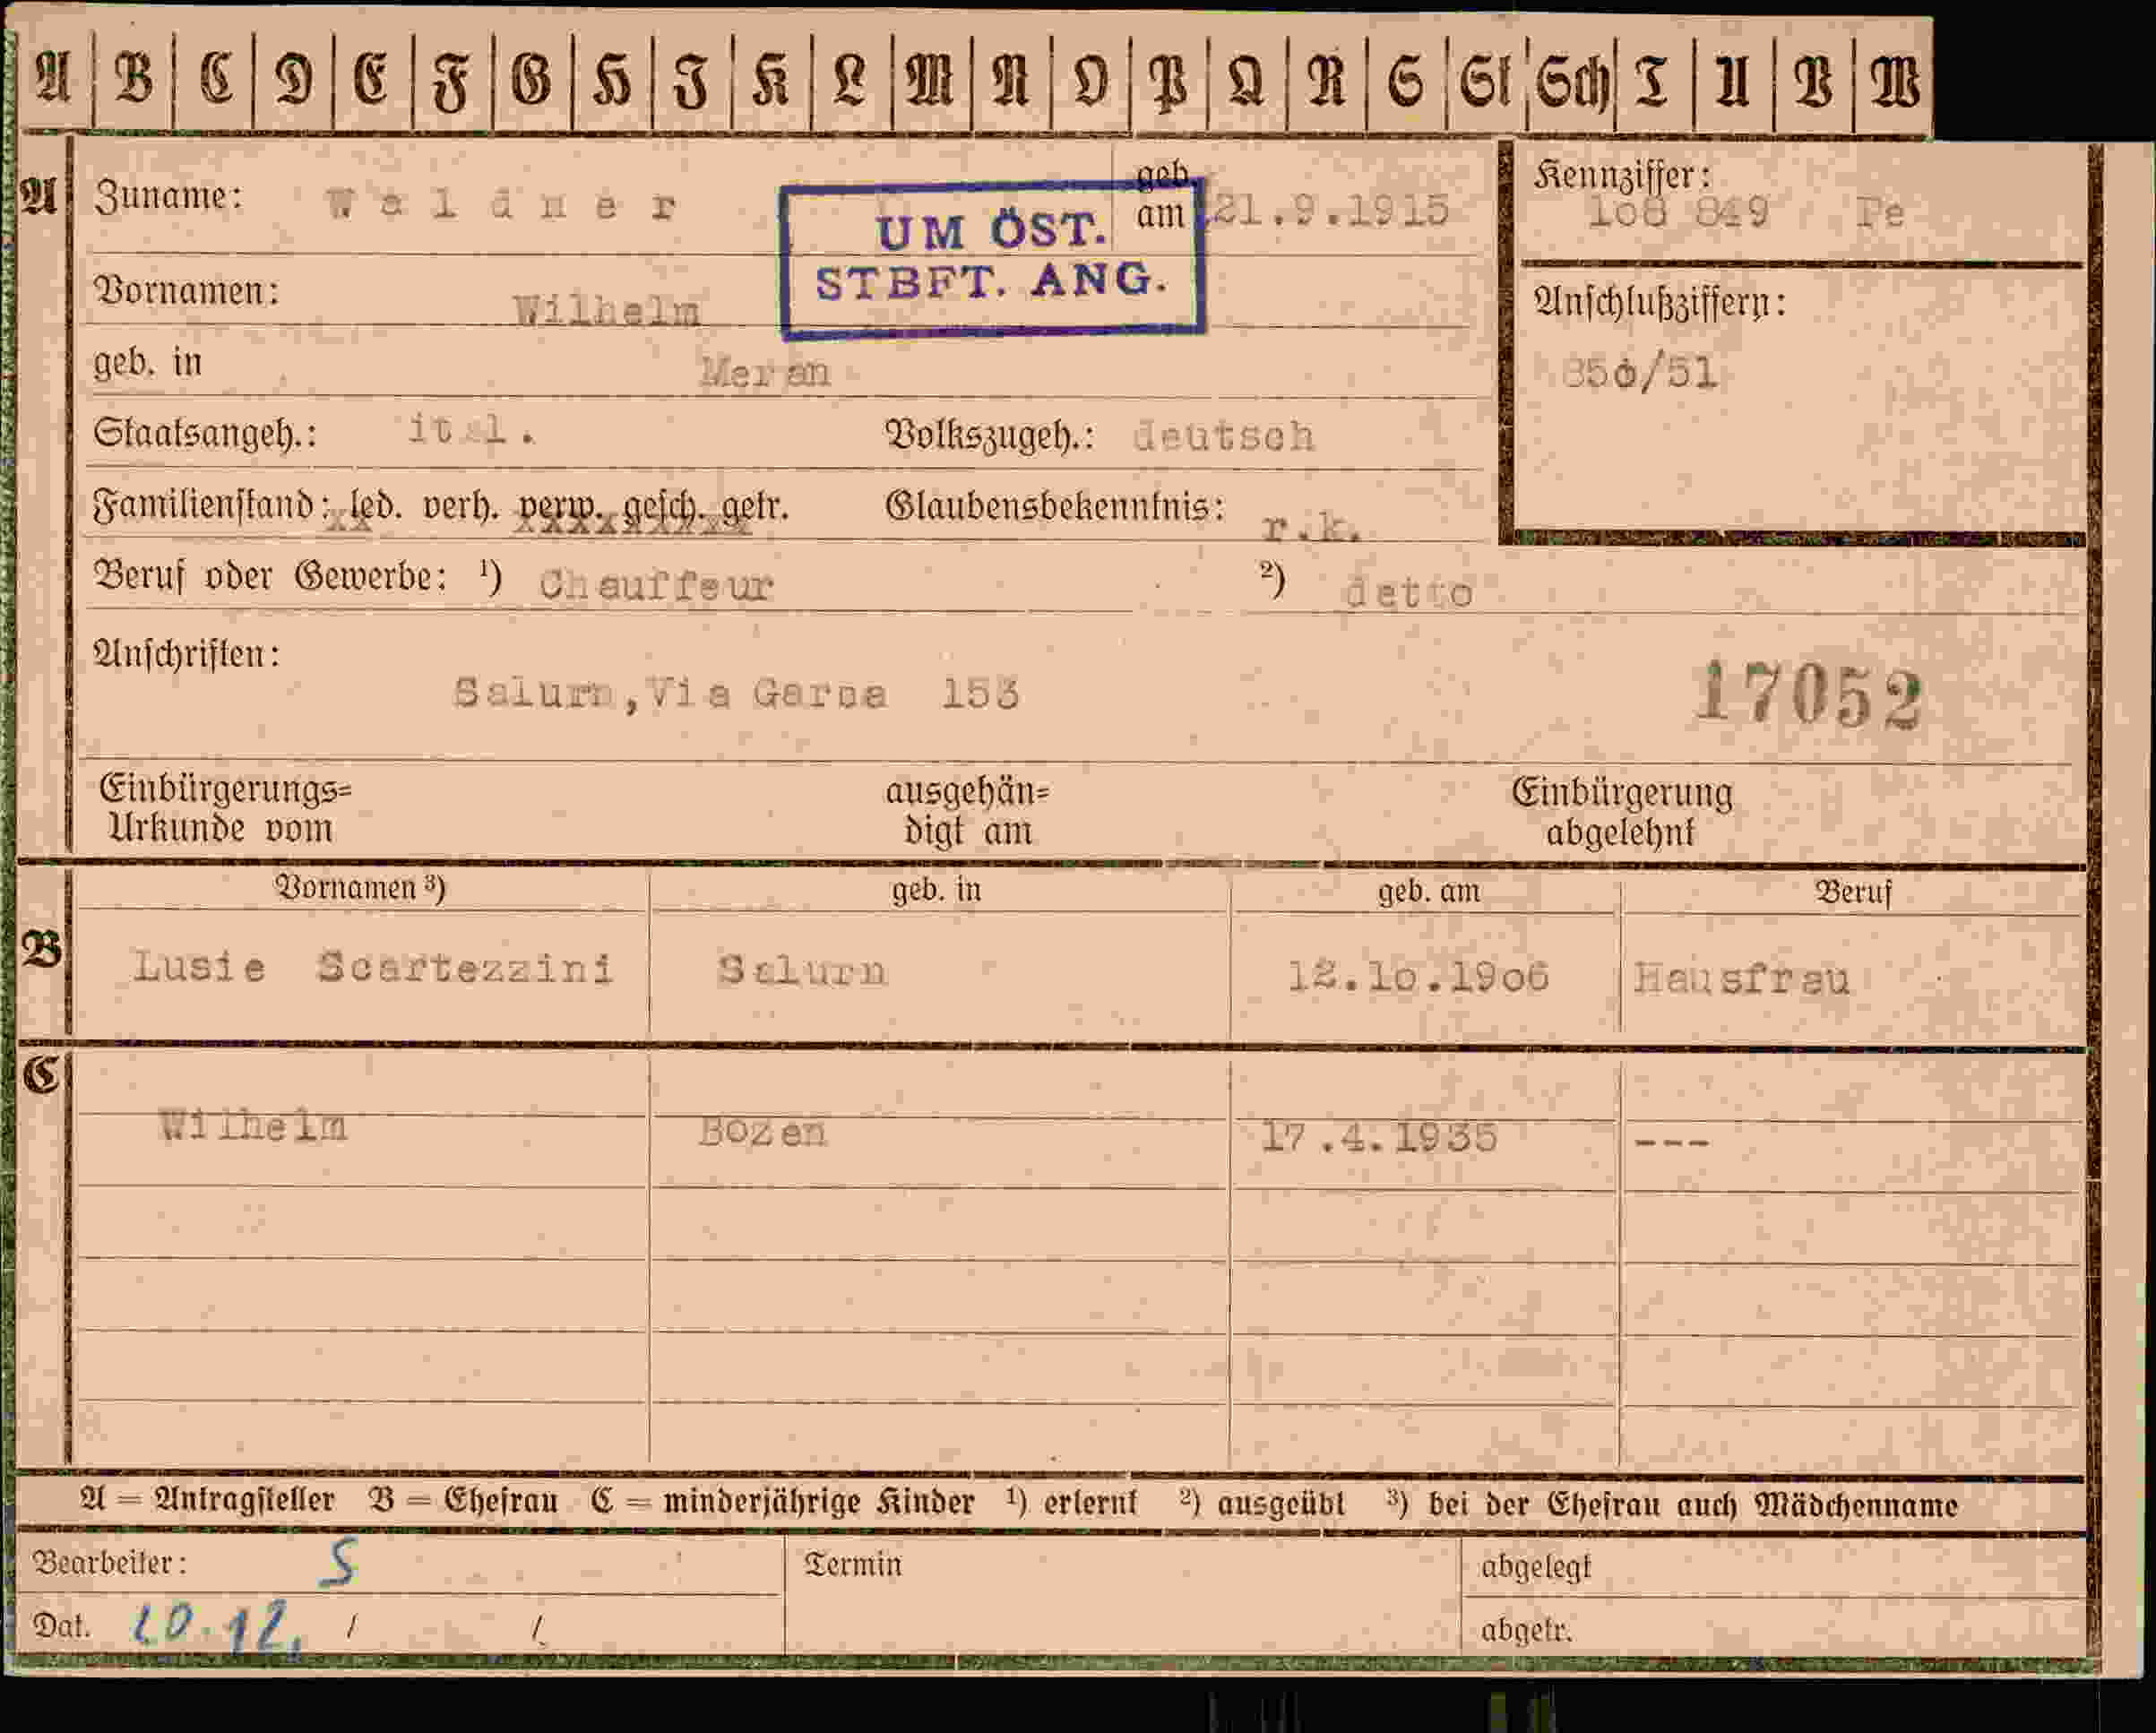 A B C D E F G H I K L M N O P Q R S St Sch T U V W
A Zuname: Waldner geb. am 21.9.1915
UM ÖST.
STBFT. ANG.
Kennziffer:
1o8 849 Pe
Vornamen: Wilhelm
Anschlußziffern:
geb. in Meran
/51
Staatsangeh.: ital. Volkszugeh.: deutsch
Familienstand: led. verh. verw. gesch. getr. Glaubensbekenntnis: r.k.
Beruf oder Gewerbe: ¹) Chauffeur ²) detto
Anschriften:
Salurn, Via 153
17052
Einbürgerungs=
Urkunde vom
ausgehän=
digt am
Einbürgerung
abgelehnt
Vornamen ³) geb. in geb. am Beruf
B Lusie Scartezzini Salurn 12.1o.19o6 Hausfrau
C
Wilhelm Bozen 17.4.1935 ---
A = Antragsteller B = Ehefrau C = minderjährige Kinder ¹) erlernt ²) ausgeübt ³) bei der Ehefrau auch Mädchenname
Bearbeiter: S Termin abgelegt
Dat. 10.12. / /. abgetr.